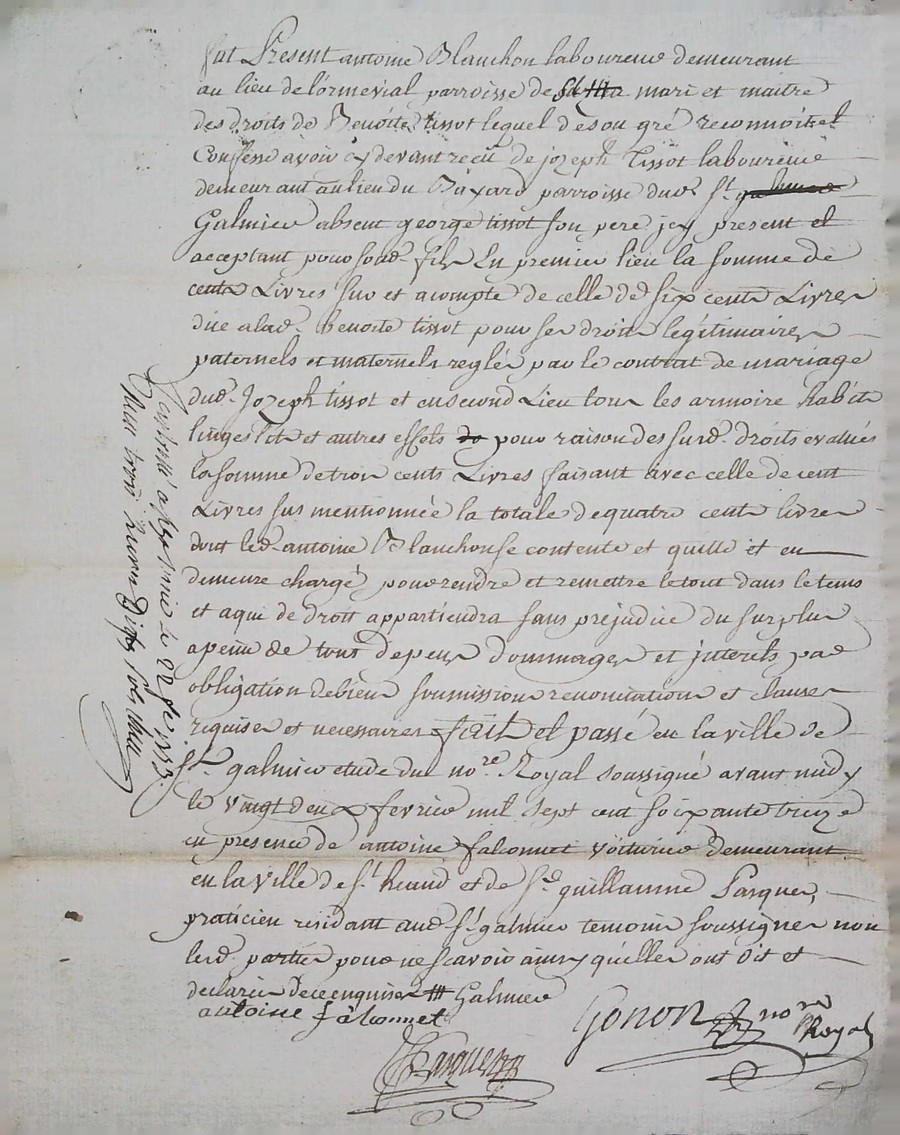 fut Present antoine Blanchon laboureur demeurant
au lieu de lormevial parroisse de mari et maitre
des droits de Benoite tissot lequel de son gré reconnoit et
Confesse avoir cy devant recu de jozeph Tissot laboureur
demeurant au lieu du Bayard parroisse dud. St.
Galmier absent george tissot son pere jcy present et
acceptant pour sond. fils En premier lieu la somme de
cents Livres sur et acompte de celle de six cents Livres
due alad. benoite tissot pour ses droits legitimaires
paternels et maternels reglés par le contrat de mariage
dud. Jozeph tissot et en second Lieu tous les armoire habits
linges lit et autres effets pour raison des surd. droits evalués
la somme de trois cents Livres faisant avec celle de cent
Livres sus mentionnée la totale de quatre cents livres
dont led. antoine Blanchon se contente et quitte et en
demeure chargé pour rendre et remettre le tout dans le tems
et a qui de droit appartiendra sans prejudice du surplus
a peine de tous depens dommages et jnterets par
obligation de biens soumissions renonciations et clauses
requises et necessaires fait et passé en la ville de
St. galmier etude du nore. Royal soussigné avant midy
le vingt deux fevrier mil sept cent soixante treize
en presence de antoine falconnet voiturier demeurant
en la ville de St. heand et de Sr. guillaume Pasquer,
praticien residant aud. St. galmier temoins soussignes non
lesd. parties pour ne scavoir ainsy quelles ont dit et
declarées de ce enquises Galmier
antoine falconnet
Gonon nore Royal
Pasquer